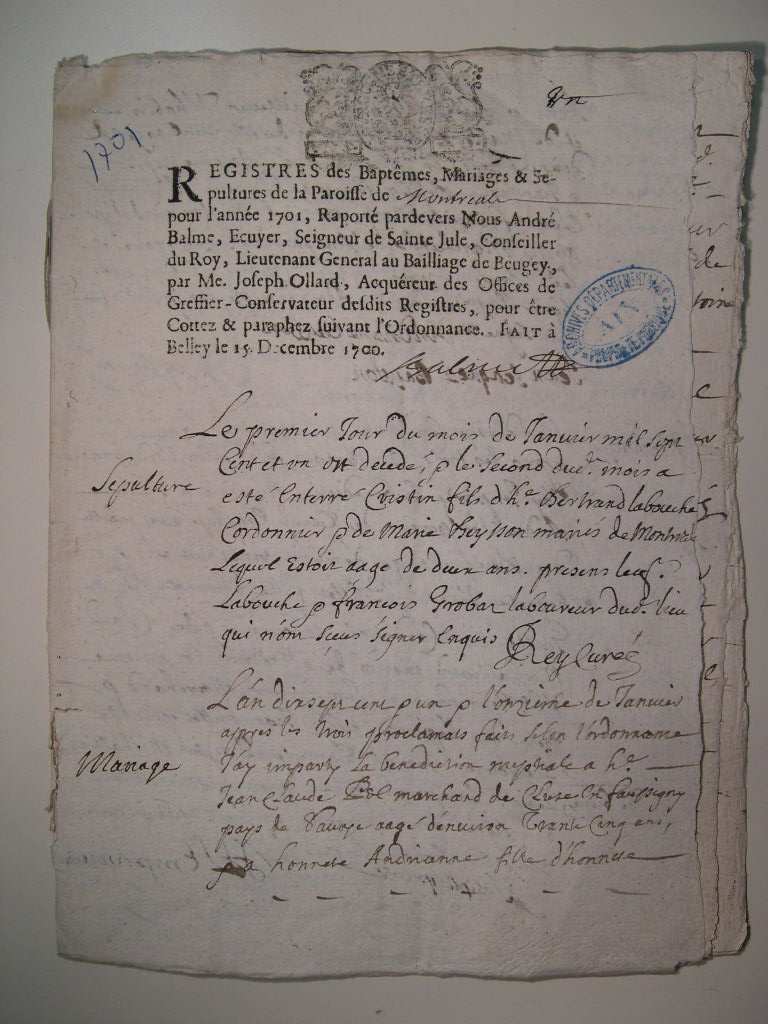 1701
REGISTRES des Baptêmes, Mariages & Se-
pultures de la Paroisse de Montreal
pour l'année 1701, Raporté pardevers Nous André
Balme, Ecuyer, Seigneur de Sainte Jule, Conseiller
du Roy, Lieutenant General au Bailliage de Beugey,
par Me. Joseph Ollard, Acquéreur des Offices de
Greffier-Conservateur desdits Registres, pour être
Cottez & paraphez suivant l'Ordonnance. FAIT à
Belley le 15. Decembre 1700.
Balme
ARCHIVES DÉPARTEMENTALES
AIN
Le premier Jour du mois de Janvier mil sept
Cent et un est decedé, & le second dud. mois a
Sepulture
esté Enterré Cristin fils d'h.e Bertrand labouche
Cordonnier & de Marie mariés de
Lequel Estoit aagé de deux ans. presens led.
Labouche & françois Grobas laboureur dud. lieu
qui n'ont sceus signer Enquis Rey Curé
L'an dixsept cent & un & l'onzieme de Janvier
apres les trois proclamats faits selon l'ordonnance
Mariage
J'ay imparty La benediction nuptiale a h.e
Jean Claude marchand de Cluse en faussigny
pays de Savoye aagé d'environ Trante Cinq ans,
& a honnete Andrianne fille d'honnete